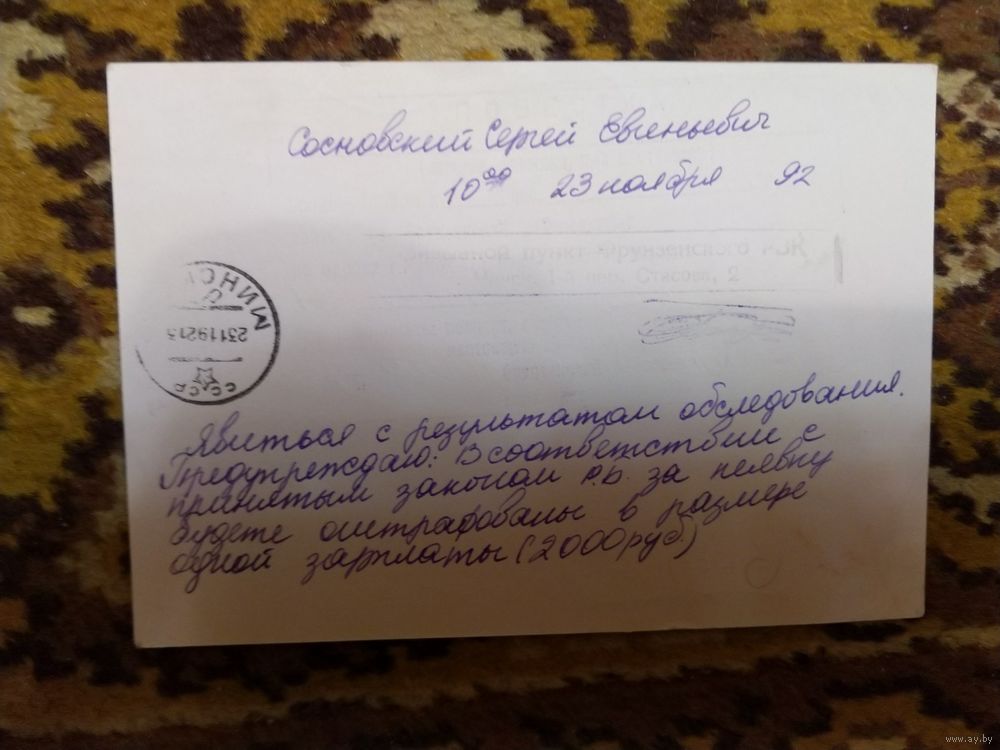 Сосновский Сергей Евгеньевич
10⁰⁰ 23 ноября 92
пункт Фрунзенского РВК
Стасова, 2
МИНСК
23119213
СССР
Явиться с результатом обследования.
Предупреждаю: В соответствии с
принятым законом Р.Б. за неявку
будете оштрафованы в размере
одной зарплаты (2000 руб.)
www.ay.by